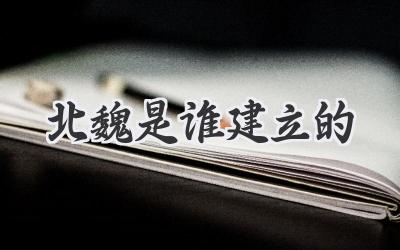 北魏是谁建立的